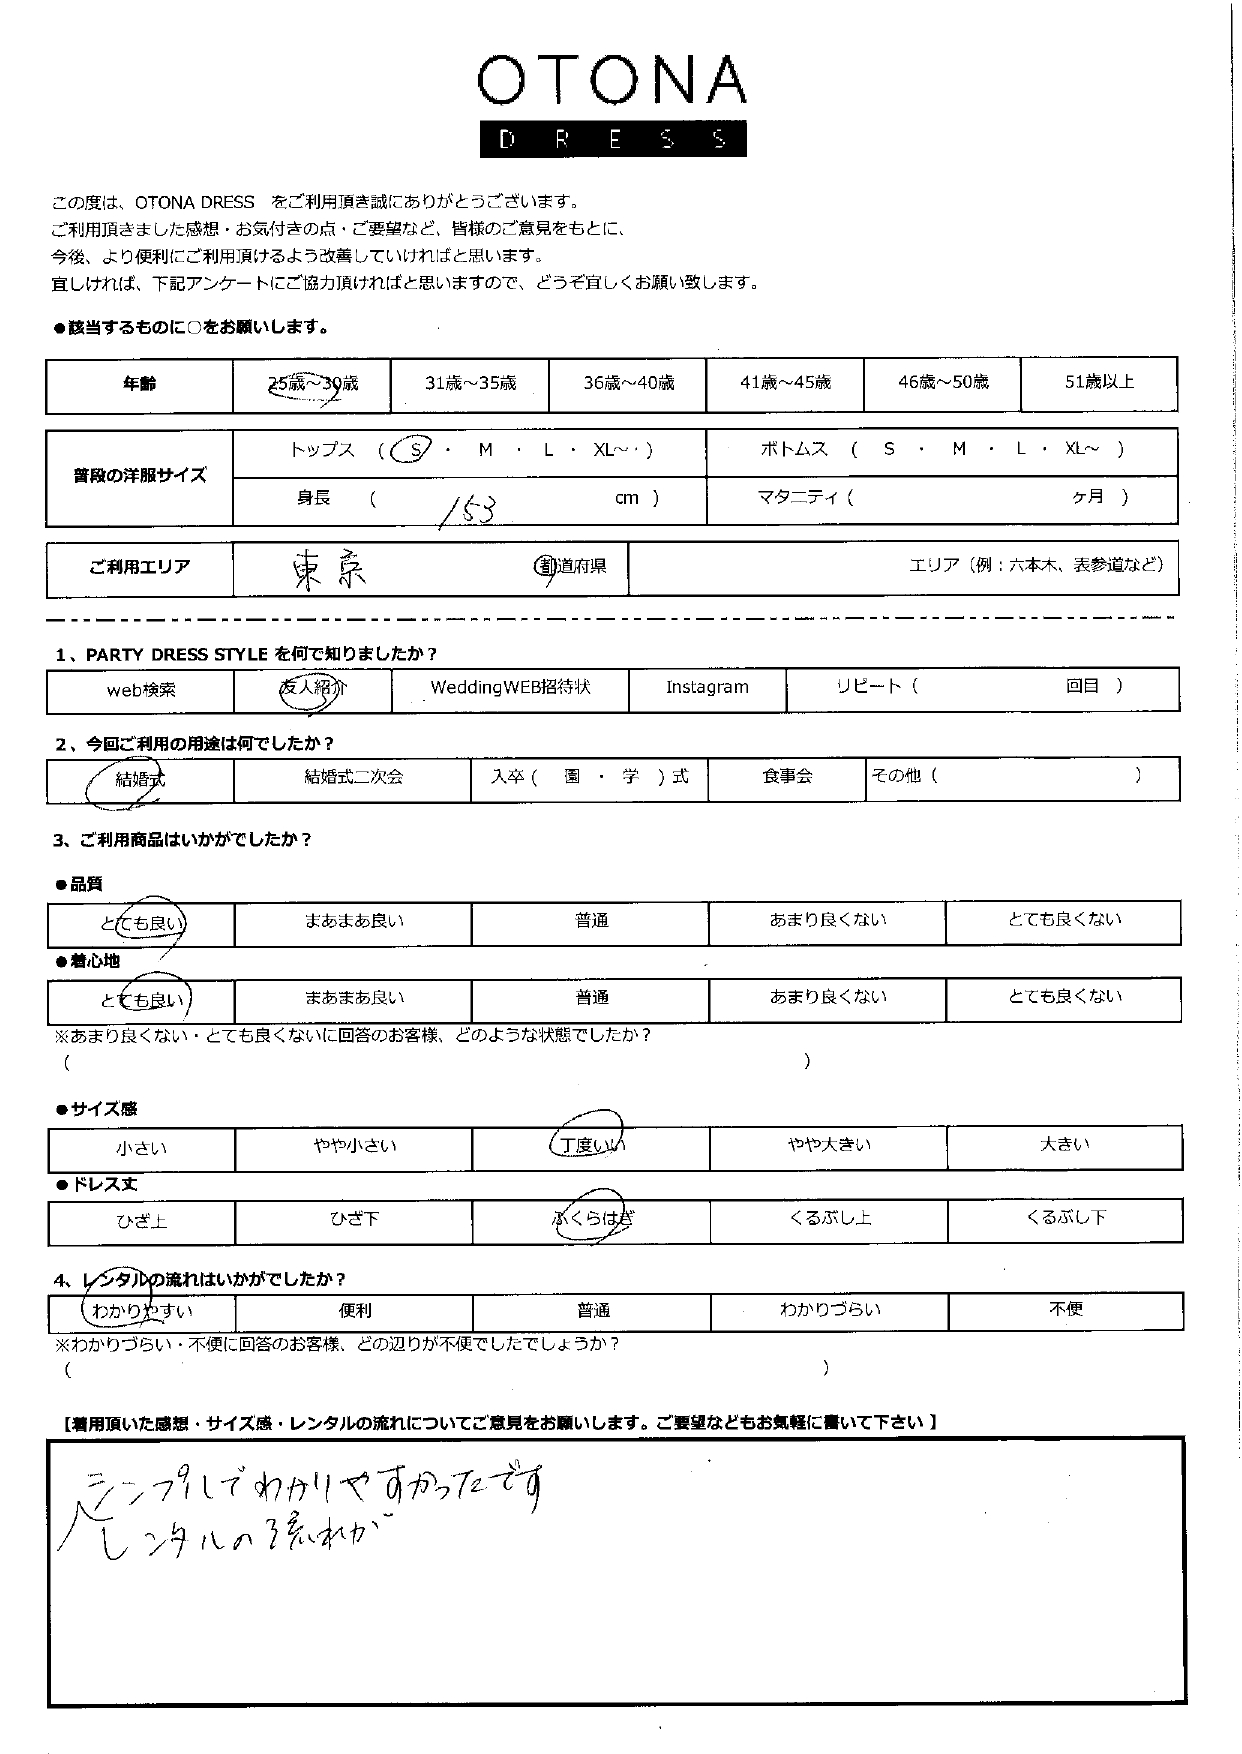 OTONA
DRESS
この度は、OTONA DRESS　をご利用頂き誠にありがとうございます。
ご利用頂きました感想・お気付きの点・ご要望など、皆様のご意見をもとに、
今後、より便利にご利用頂けるよう改善していければと思います。
宜しければ、下記アンケートにご協力頂ければと思いますので、どうぞ宜しくお願い致します。
●該当するものに○をお願いします。
年齢 25歳～30歳 31歳～35歳 36歳～40歳 41歳～45歳 46歳～50歳 51歳以上
普段の洋服サイズ
トップス （ S ・ M ・ L ・ XL～ ） ボトムス （ S ・ M ・ L ・ XL～ ）
身長 （ 153 cm ） マタニティ（ ヶ月 ）
ご利用エリア 東京 都道府県 エリア（例：六本木、表参道など）
1、PARTY DRESS STYLE を何で知りましたか？
web検索 友人紹介 WeddingWEB招待状 Instagram リピート（ 回目 ）
2、今回ご利用の用途は何でしたか？
結婚式 結婚式二次会 入卒（ 園 ・ 学 ）式 食事会 その他（ ）
3、ご利用商品はいかがでしたか？
●品質
とても良い まあまあ良い 普通 あまり良くない とても良くない
●着心地
とても良い まあまあ良い 普通 あまり良くない とても良くない
※あまり良くない・とても良くないに回答のお客様、どのような状態でしたか？
（ ）
●サイズ感
小さい やや小さい 丁度いい やや大きい 大きい
●ドレス丈
ひざ上 ひざ下 ふくらはぎ くるぶし上 くるぶし下
4、レンタルの流れはいかがでしたか？
わかりやすい 便利 普通 わかりづらい 不便
※わかりづらい・不便に回答のお客様、どの辺りが不便でしたでしょうか？
（ ）
【着用頂いた感想・サイズ感・レンタルの流れについてご意見をお願いします。ご要望などもお気軽に書いて下さい】
シンプルでわかりやすかったです
レンタルの流れが